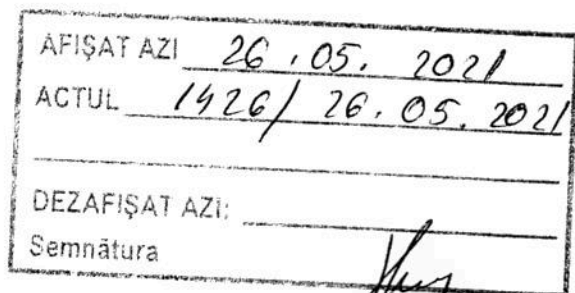 AFIȘAT AZI 26.05.2021
ACTUL 1426/26.05.2021
DEZAFIȘAT AZI:
Semnătura